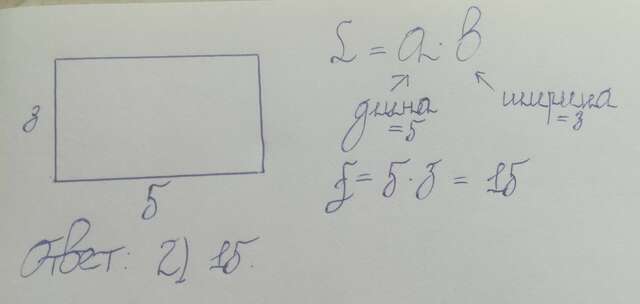 S = a · b
3
длина
= 5
ширина
= 3
5
S = 5 · 3 = 15
Ответ: 2) 15.